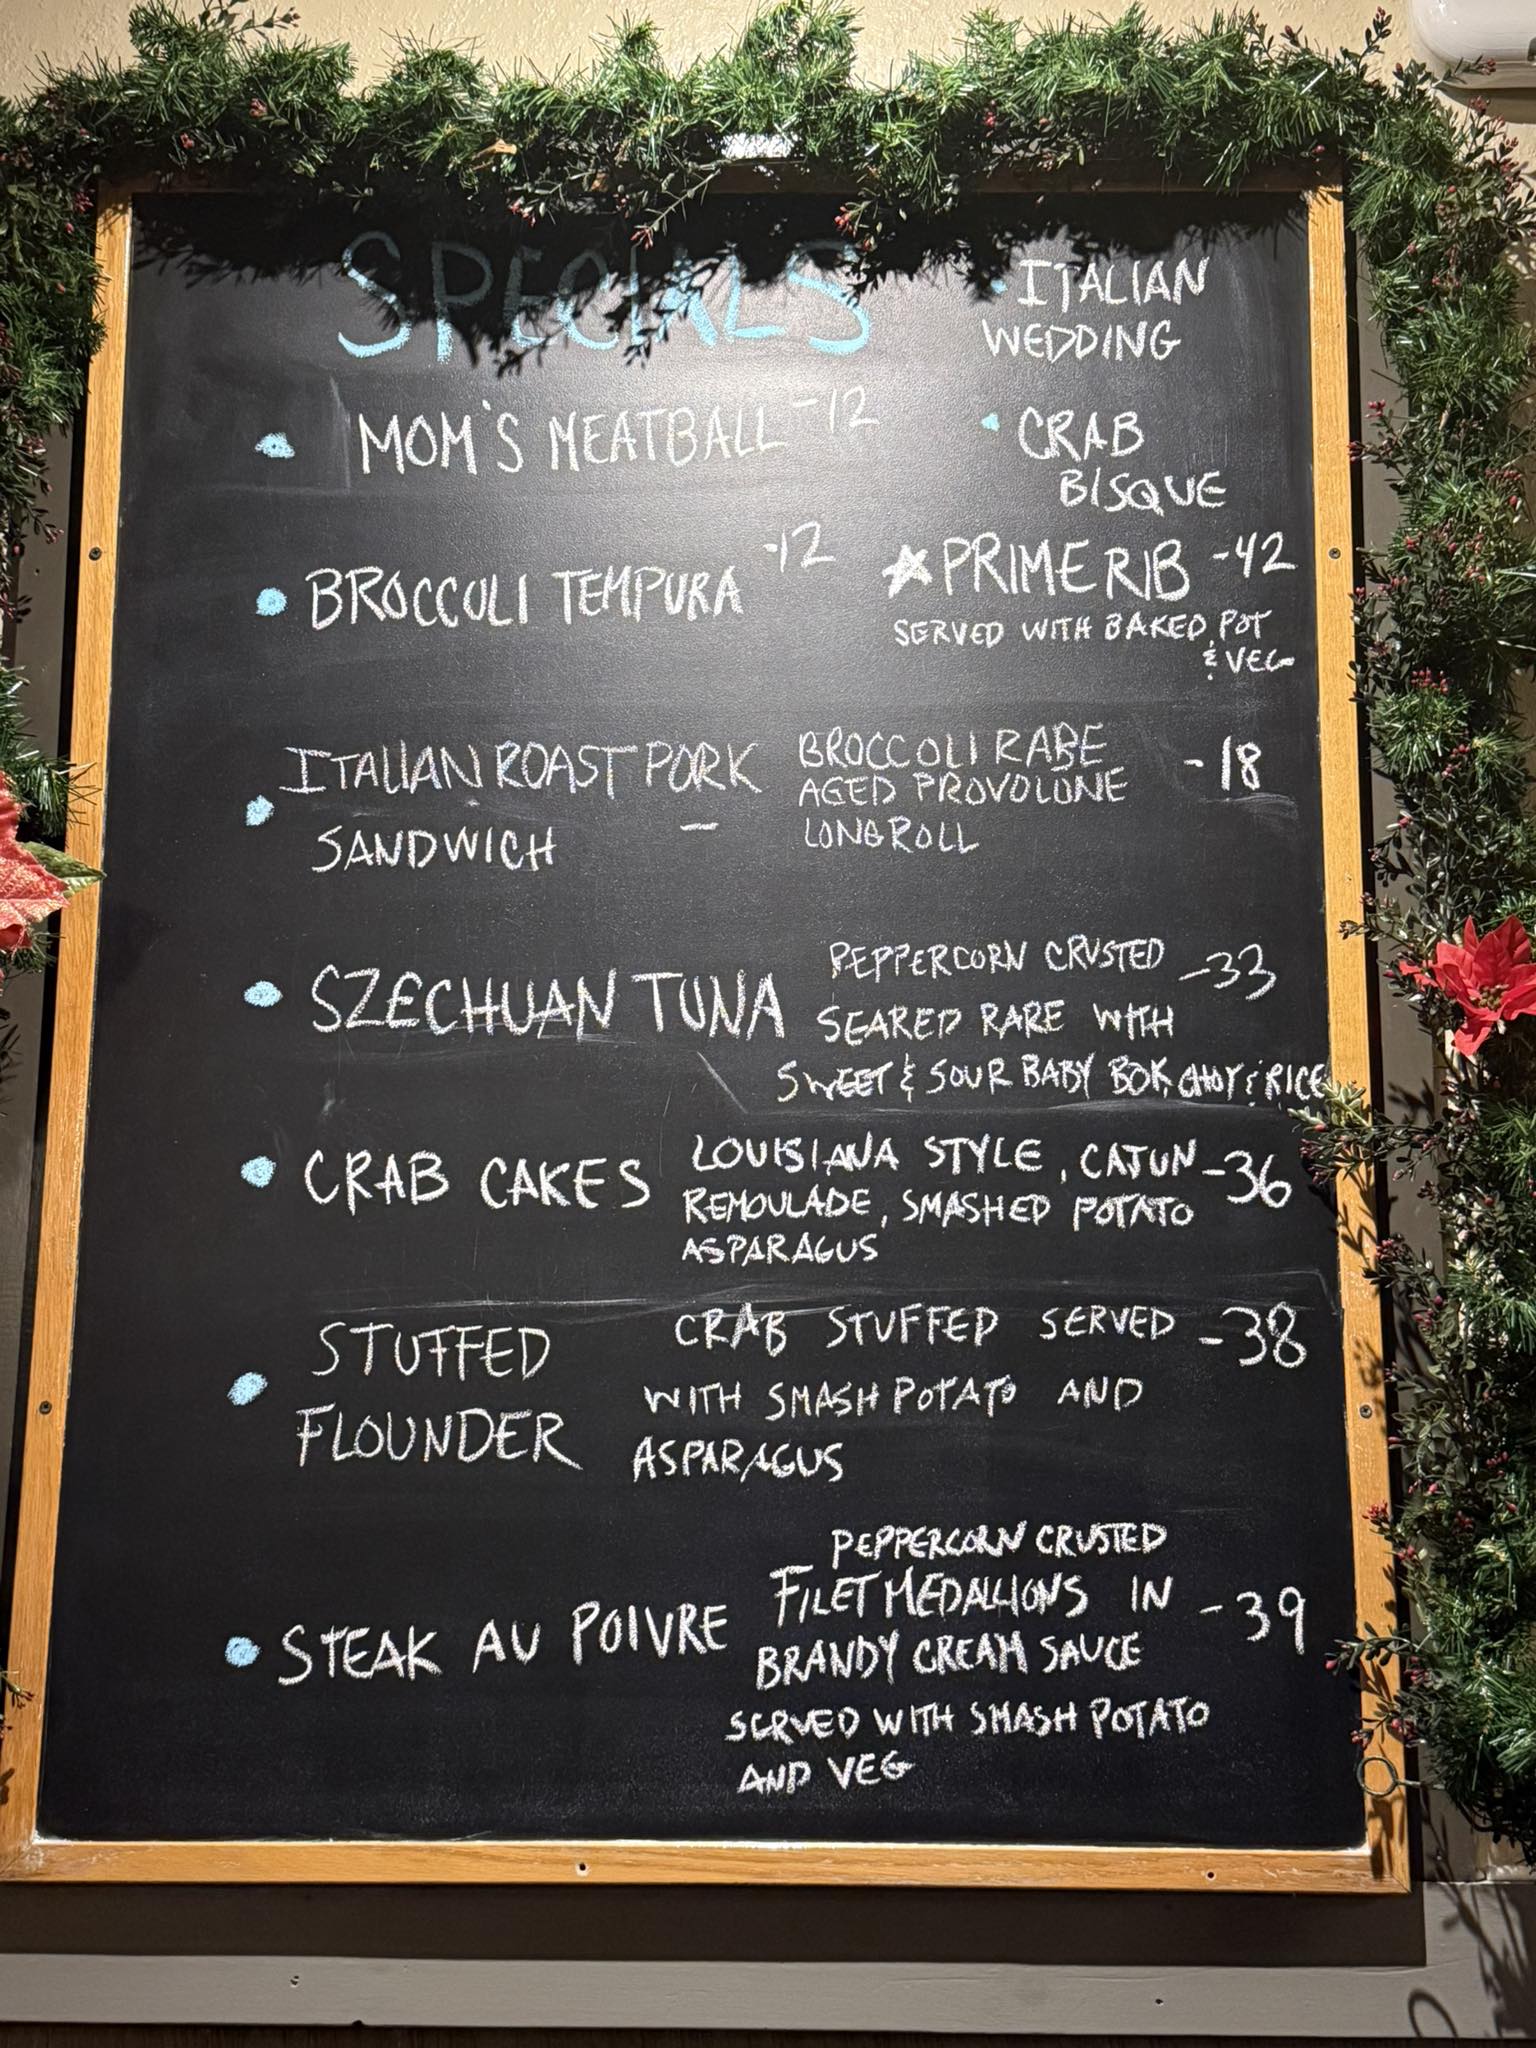 SPECIALS
• ITALIAN
WEDDING
• MOM'S MEATBALL -12
• CRAB
BISQUE
• BROCCOLI TEMPURA -12
☆ PRIME RIB -42
SERVED WITH BAKED POT
& VEG
• ITALIAN ROAST PORK
SANDWICH -
BROCCOLI RABE
AGED PROVOLONE
LONG ROLL
-18
• SZECHUAN TUNA
PEPPERCORN CRUSTED -33
SEARED RARE WITH
SWEET & SOUR BABY BOK CHOY & RICE
• CRAB CAKES
LOUISIANA STYLE, CAJUN -36
REMOULADE, SMASHED POTATO
ASPARAGUS
• STUFFED
FLOUNDER
CRAB STUFFED SERVED -38
WITH SMASH POTATO AND
ASPARAGUS
• STEAK AU POIVRE
PEPPERCORN CRUSTED
FILET MEDALLIONS IN -39
BRANDY CREAM SAUCE
SERVED WITH SMASH POTATO
AND VEG